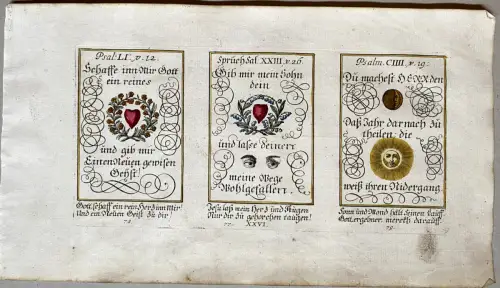 Psal: LI. v. 12.
Schaffe inn Mir Gott
ein reines
und gib mir
Einen Neuen gewisen
Geyst!
Gott schaff ein rein Herd inn Mir
Und ein Neuen Geist zu dir!
Sprüch Sal. XXIII. v. 26.
Gib mir mein Sohn
dein
und lasse deinen
meine Wege
Wohlgefallen.
Jesu laß mein Herd und Augen
Nur dir zu gehorchen taugen!
XXVI.
Psalm. CIIII. v. 19.
Du machest HERR den
Daß Jahr darnach zu
theilen, die
weiß ihren Nidergang
Sonn und Mond hällt seinen Lauff
Gott ergebner merckts darauff.